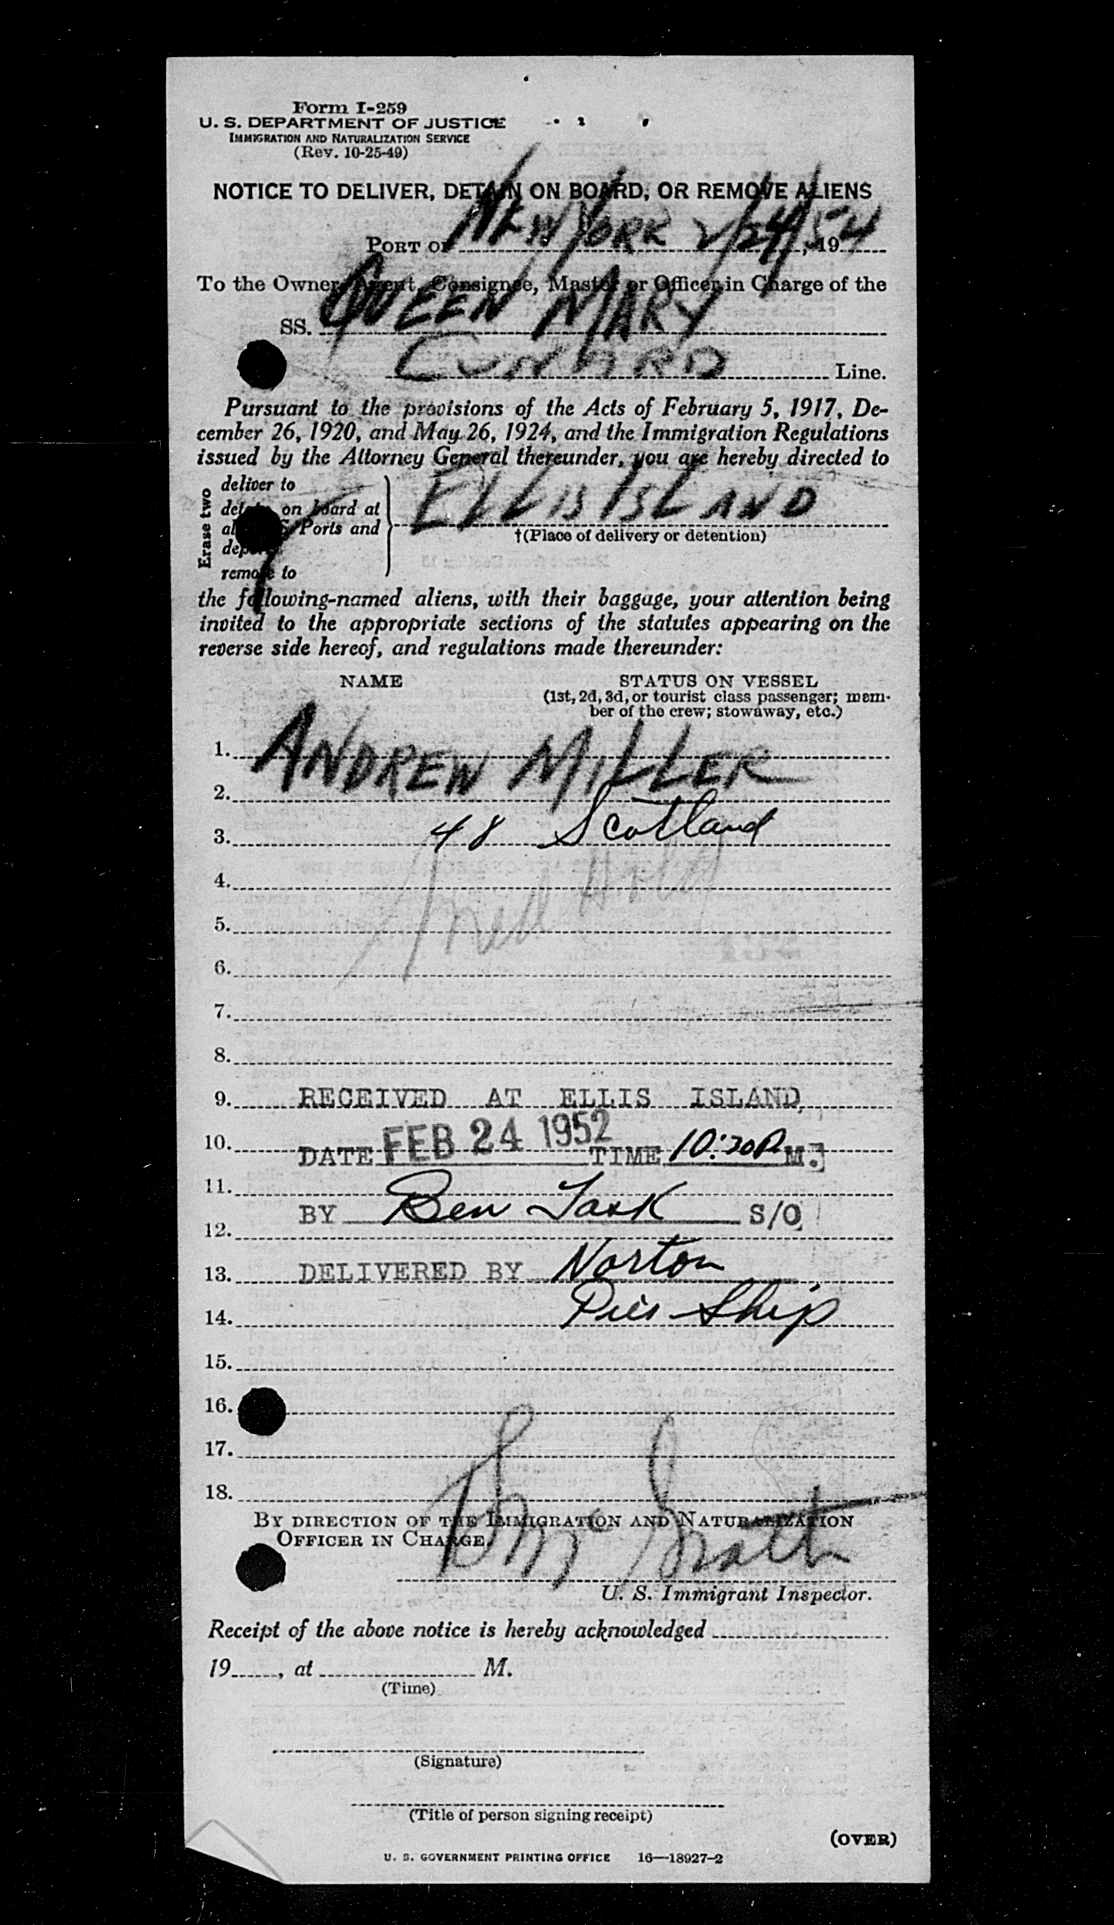 Form I-259
U. S. DEPARTMENT OF JUSTICE
IMMIGRATION AND NATURALIZATION SERVICE
(Rev. 10-25-49)
NOTICE TO DELIVER, DETAIN ON BOARD, OR REMOVE ALIENS
PORT OF NEW YORK 2/24/54, 19
To the Owner, Agent, Consignee, Master or Officer in Charge of the
SS. QUEEN MARY
CUNARD Line.
Pursuant to the provisions of the Acts of February 5, 1917, De-
cember 26, 1920, and May 26, 1924, and the Immigration Regulations
issued by the Attorney General thereunder, you are hereby directed to
Erase two
deliver to
detain on board at
all U. S. Ports and
deport
remove to
ELLIS ISLAND
†(Place of delivery or detention)
the following-named aliens, with their baggage, your attention being
invited to the appropriate sections of the statutes appearing on the
reverse side hereof, and regulations made thereunder:
NAME STATUS ON VESSEL
(1st, 2d, 3d, or tourist class passenger; mem-
ber of the crew; stowaway, etc.)
1. ANDREW MILLER
2.
3. 48 Scotland
4.
5. Med Hold
6.
7.
8.
9. RECEIVED AT ELLIS ISLAND
10. DATE FEB 24 1952 TIME 10:20 P M.
11.
BY Ben Task S/O
12.
13. DELIVERED BY Norton
14. Pier Ship
15.
16.
17.
18.
BY DIRECTION OF THE IMMIGRATION AND NATURALIZATION
OFFICER IN CHARGE.
McGrath
U. S. Immigrant Inspector.
Receipt of the above notice is hereby acknowledged
19 , at M.
(Time)
(Signature)
(Title of person signing receipt)
(OVER)
U. S. GOVERNMENT PRINTING OFFICE 16—18927-2